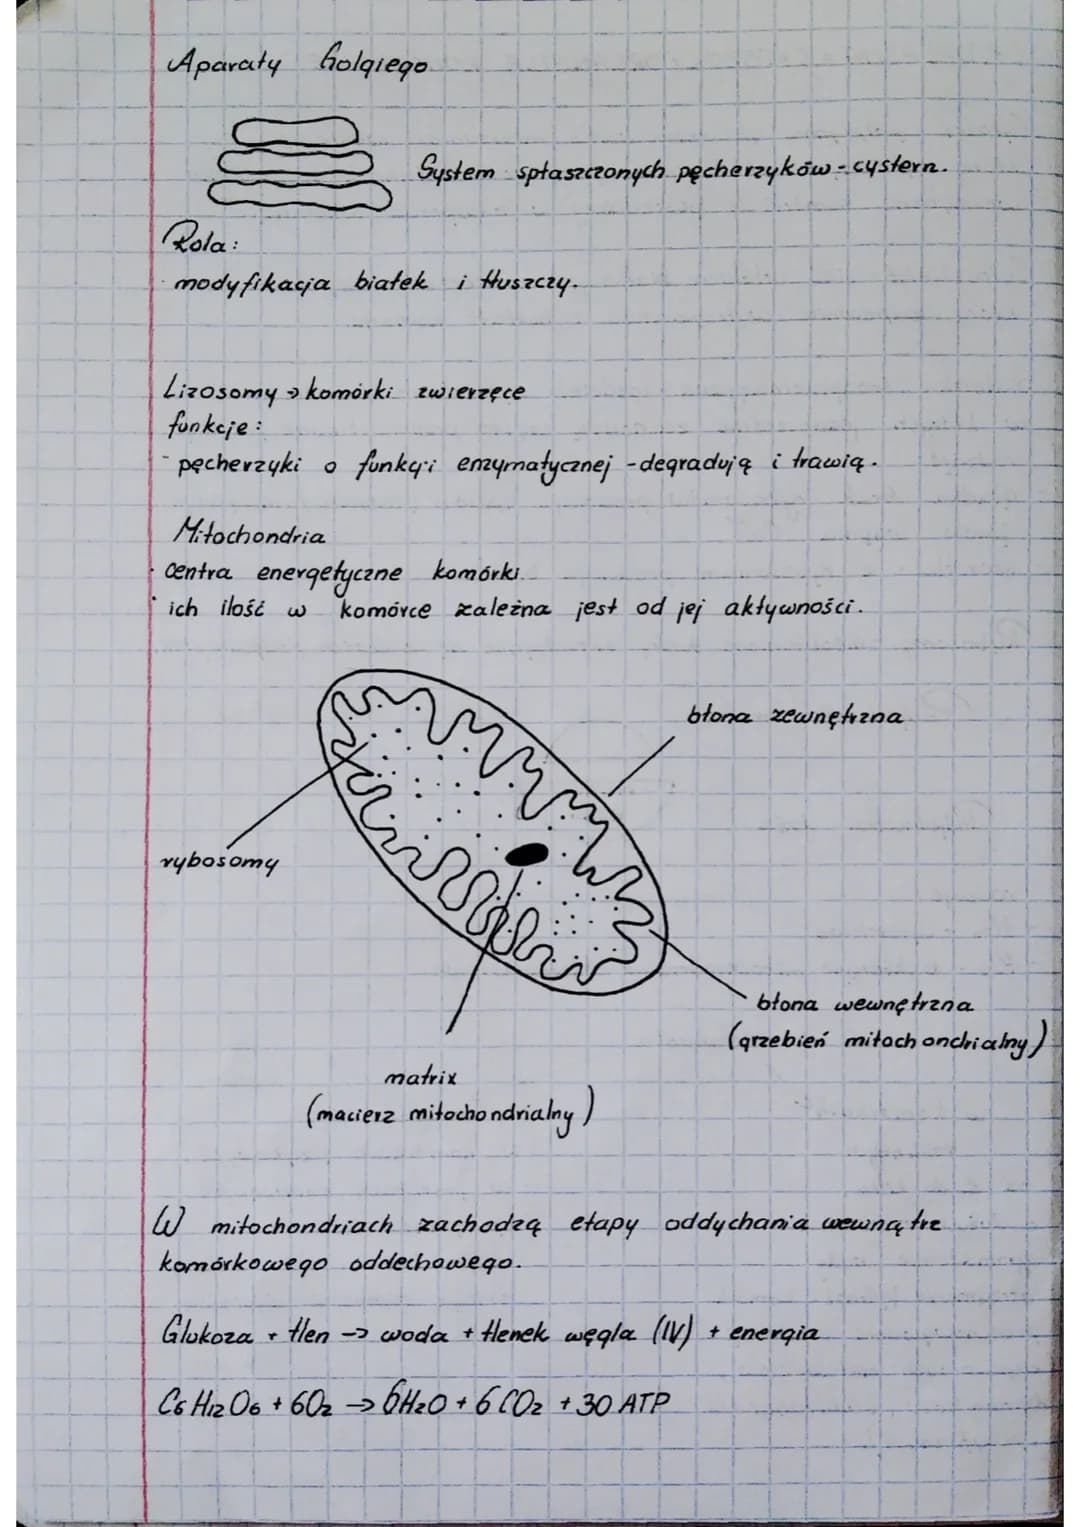 Aparaty Golgiego
System spłaszczonych pęcherzyków - cystern.
Rola:
modyfikacja białek i tłuszczy.
Lizosomy → komórki zwierzęce
funkcje:
- pęcherzyki o funkcji enzymatycznej - degradują i trawią.
Mitochondria
· centra energetyczne komórki.
· ich ilość w komórce zależna jest od jej aktywności.
błona zewnętrzna
rybosomy
błona wewnętrzna
(grzebień mitochondrialny)
matrix
(macierz mitochondrialny)
W mitochondriach zachodzą etapy oddychania wewnątrz
komórkowego oddechowego.
Glukoza + tlen → woda + tlenek węgla (IV) + energia
C6H12O6 + 6O2 → 6H2O + 6CO2 + 30 ATP